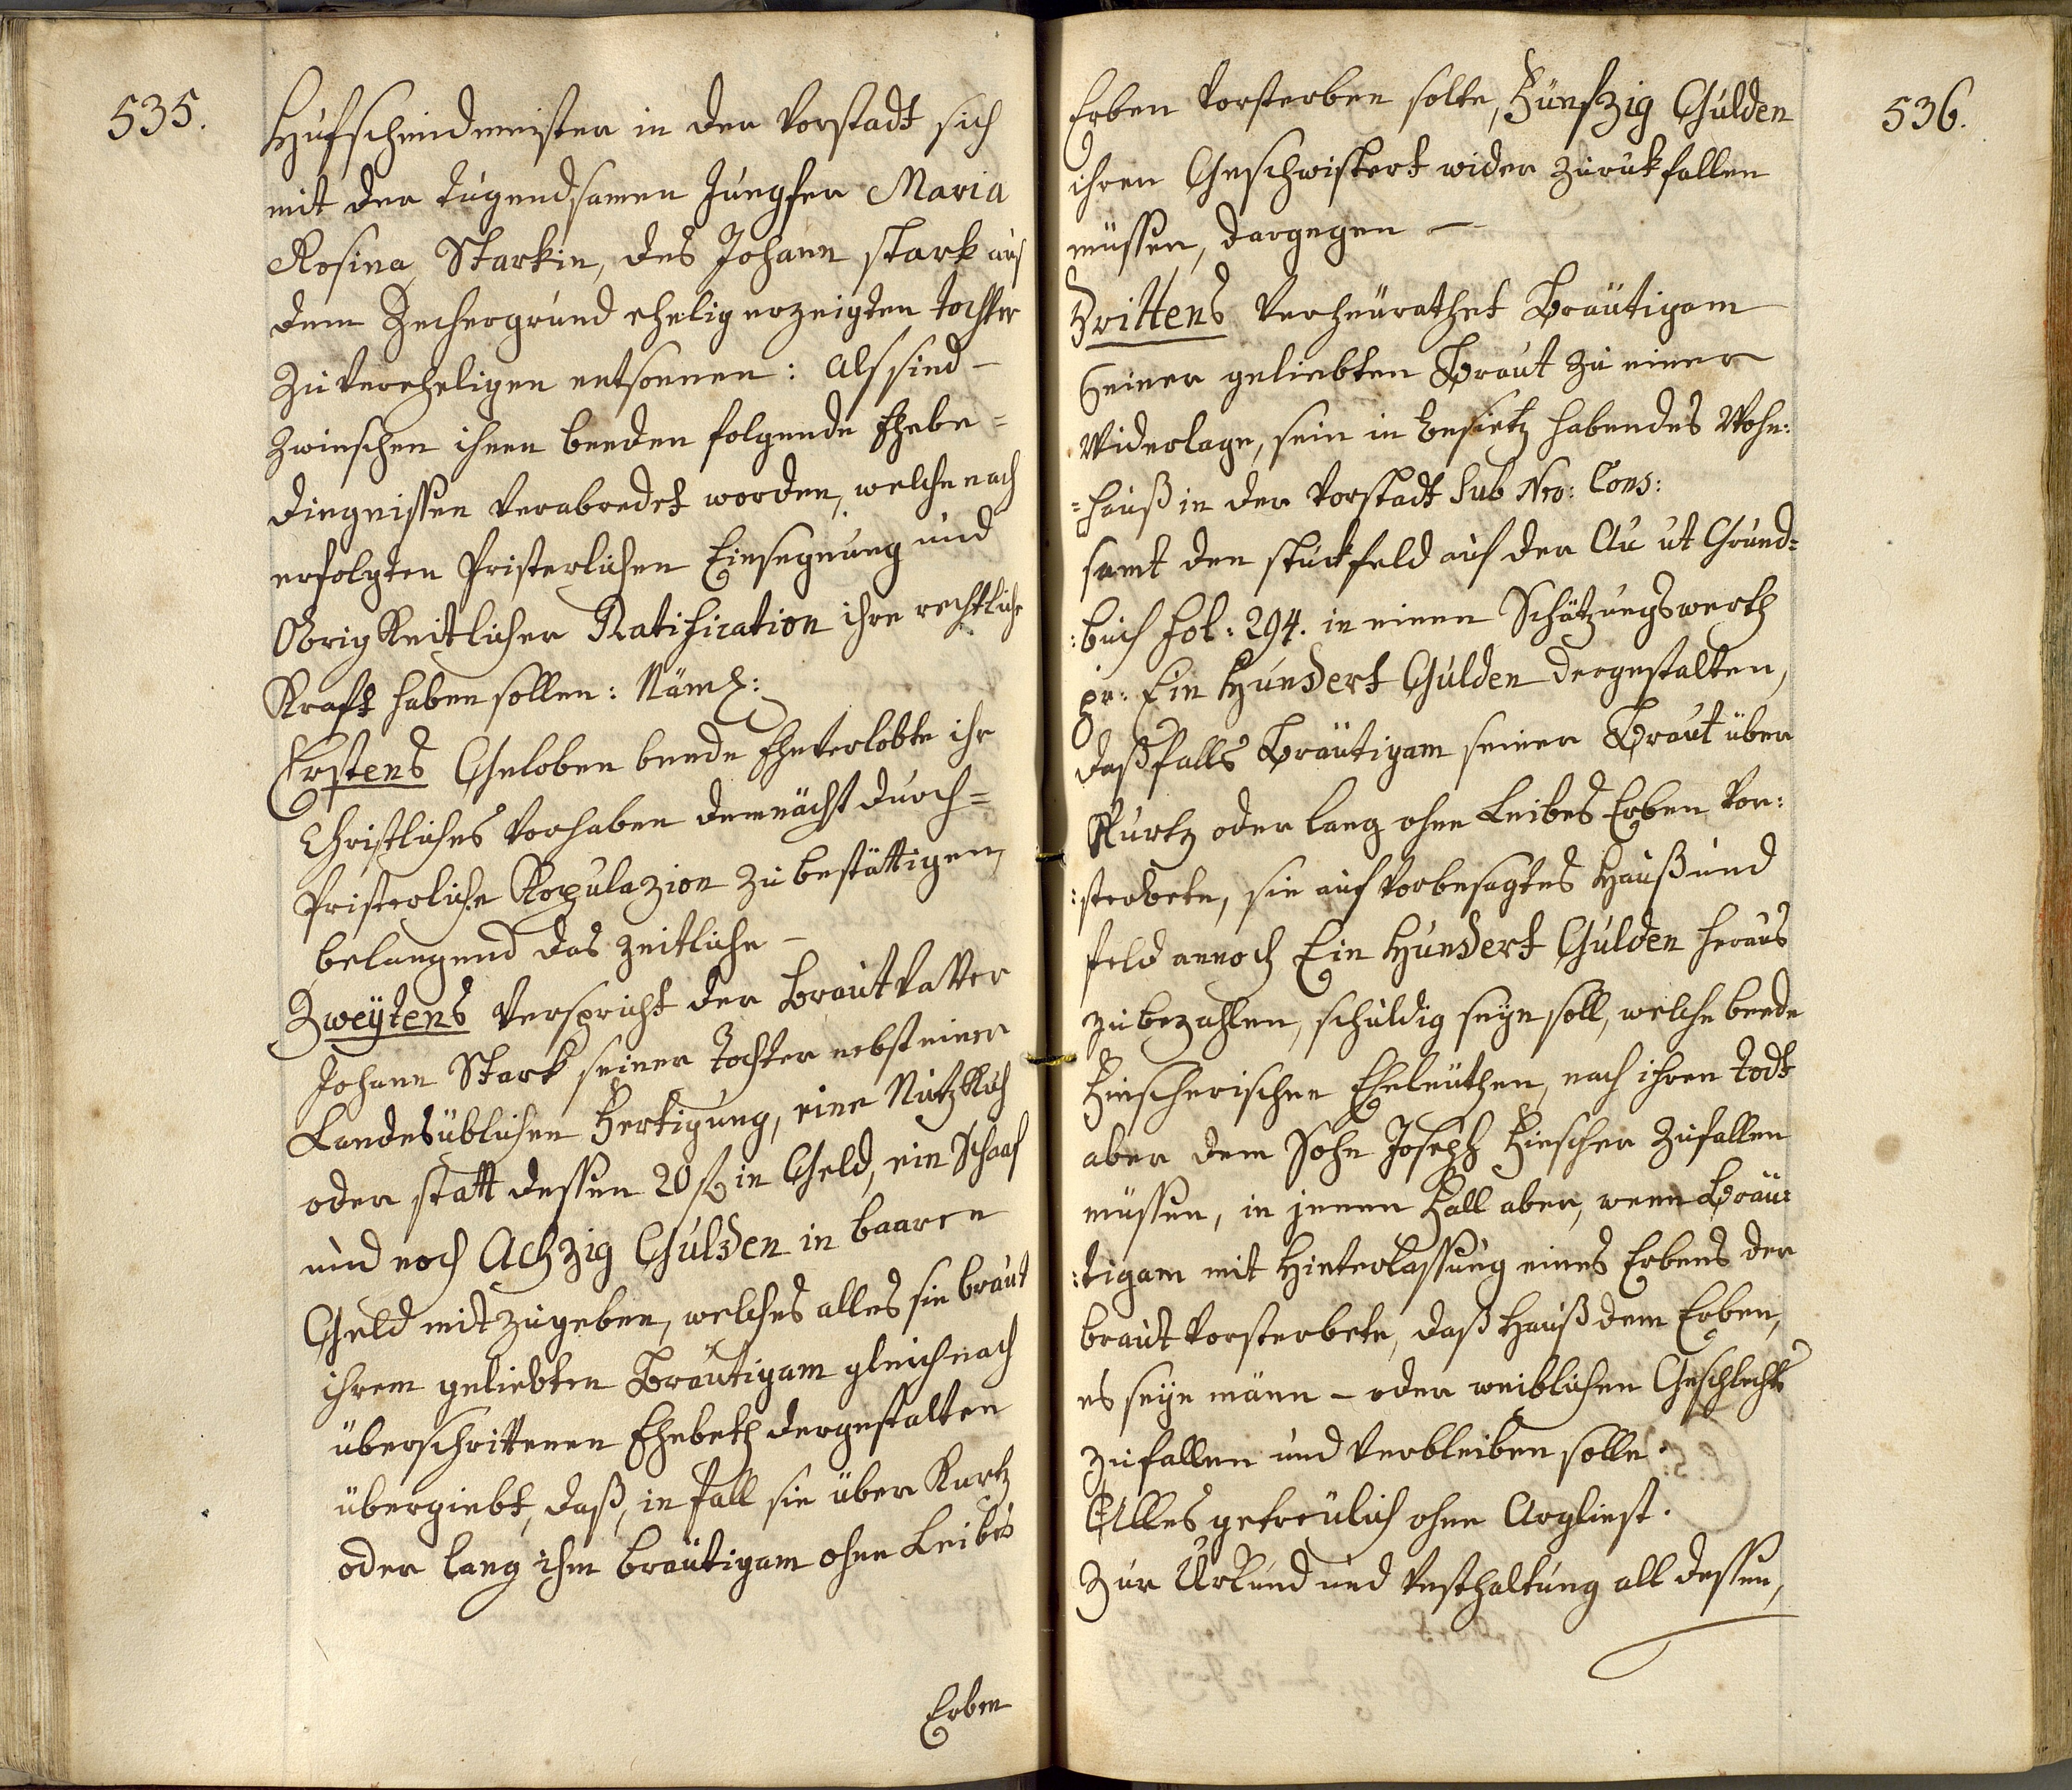 535.
Hufschmidmeister in der Vorstadt sich
mit der tugendsamen Jungfer Maria
Rosina Starkin, des Johann Stark aus
dem Zechergrund ehelig erzeigten tochter
zu vereheligen entsonnen: Als sind –
zwischen ihnen beeden folgende Ehebe=
dingnissen verabredet worden, welche nach
erfolgten Pristerlichen Einsegnung und
Obrigkeitlicher Ratification ihre rechtliche
Kraft haben sollen: Näml:
Erstens Geloben beede Eheverlobte ihr
Christliches Vorhaben demnächst durch=
Pristerliche Kopulazion zu bestättigen,
belangend das zeitliche –
Zweÿtens Verspricht der Braut Vatter
Johann Stark seiner Tochter nebst einer
Landesüblichen Fertigung, eine Nutz Kuh
oder statt dessen 20 f in Geld, ein Schaaf
und noch Achzig Gulden in baaren
Geld mitzugeben, welches alles sie braut
ihrem geliebten Bräutigam gleich nach
überschrittenen Ehebeth dergestalten
übergiebt, daß, in fall sie über Kurtz
oder lang ihm bräutigam ohne Leibes
Erben
536.
Erben Vorsterben solte, Fünfzig Gulden
ihren Geschwistert wider zurukfallen
müssen, dargegen –
Drittens Verheürathet Bräutigam
Seiner geliebten Braut zu einer
Widerlage, sein in besietz habendes Wohn:
=hauß in der Vorstadt Sub Nro: Cons:
samt den stückfeld auf der Au ut Grund=
:buch fol: 294. in einen Schätzungswerth
pr: Ein Hundert Gulden dergestalten,
daß falls Bräutigam seiner Braut über
Kurtz oder lang ohne Leibes Erben vor:
:sterbete, sie auf vorbesagtes Hauß und
feld annoch Ein Hundert Gulden heraus
zu bezahlen, schuldig seÿn soll, welche beede
Hirscherischen Eheleüthen, nach ihren todt
aber dem Sohn Joseph Hirscher zufallen
müssen, in jenem Fall aber, wenn Bräu:
:tigam mit Hinterlassung eines Erbens der
braut Vorsterbete, daß Hauß dem Erben,
es seÿe männ – oder weiblichen Geschlechts
zufallen und verbleiben solle.
Alles getreülich ohne Argliest.
Zur Urkund und Vesthaltung all dessen,